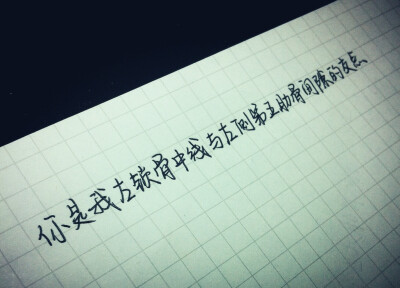 你是我左软骨中线与左侧第五肋骨间隙的交点